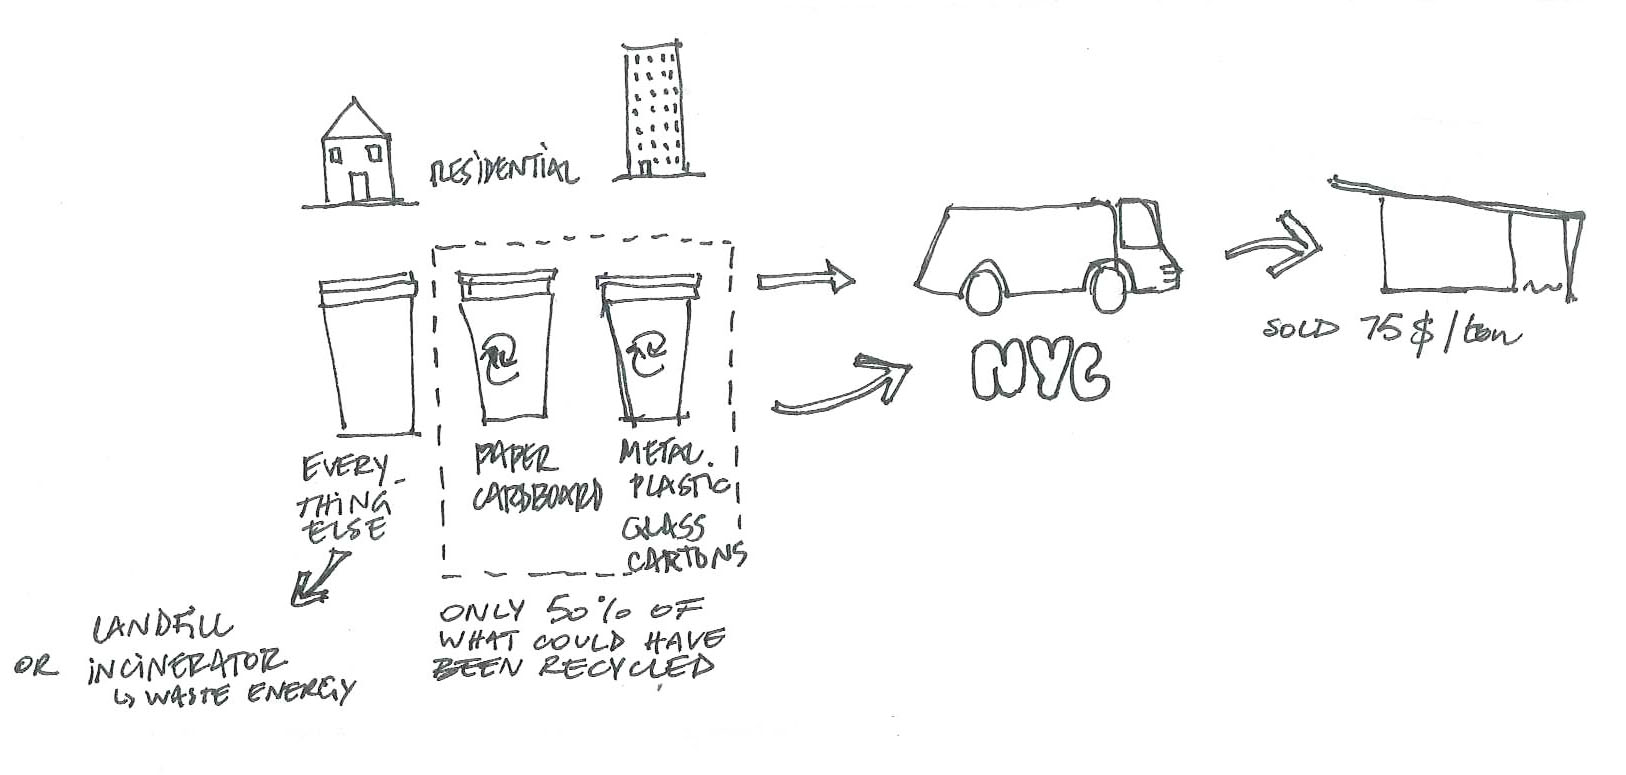 RESIDENTIAL
EVERY-
THING
ELSE
PAPER
CARDBOARD
METAL.
PLASTIC
GLASS
CARTONS
NYC
SOLD 75$/ton
LANDFILL
OR INCINERATOR
↳ WASTE ENERGY
ONLY 50% OF
WHAT COULD HAVE
BEEN RECYCLED